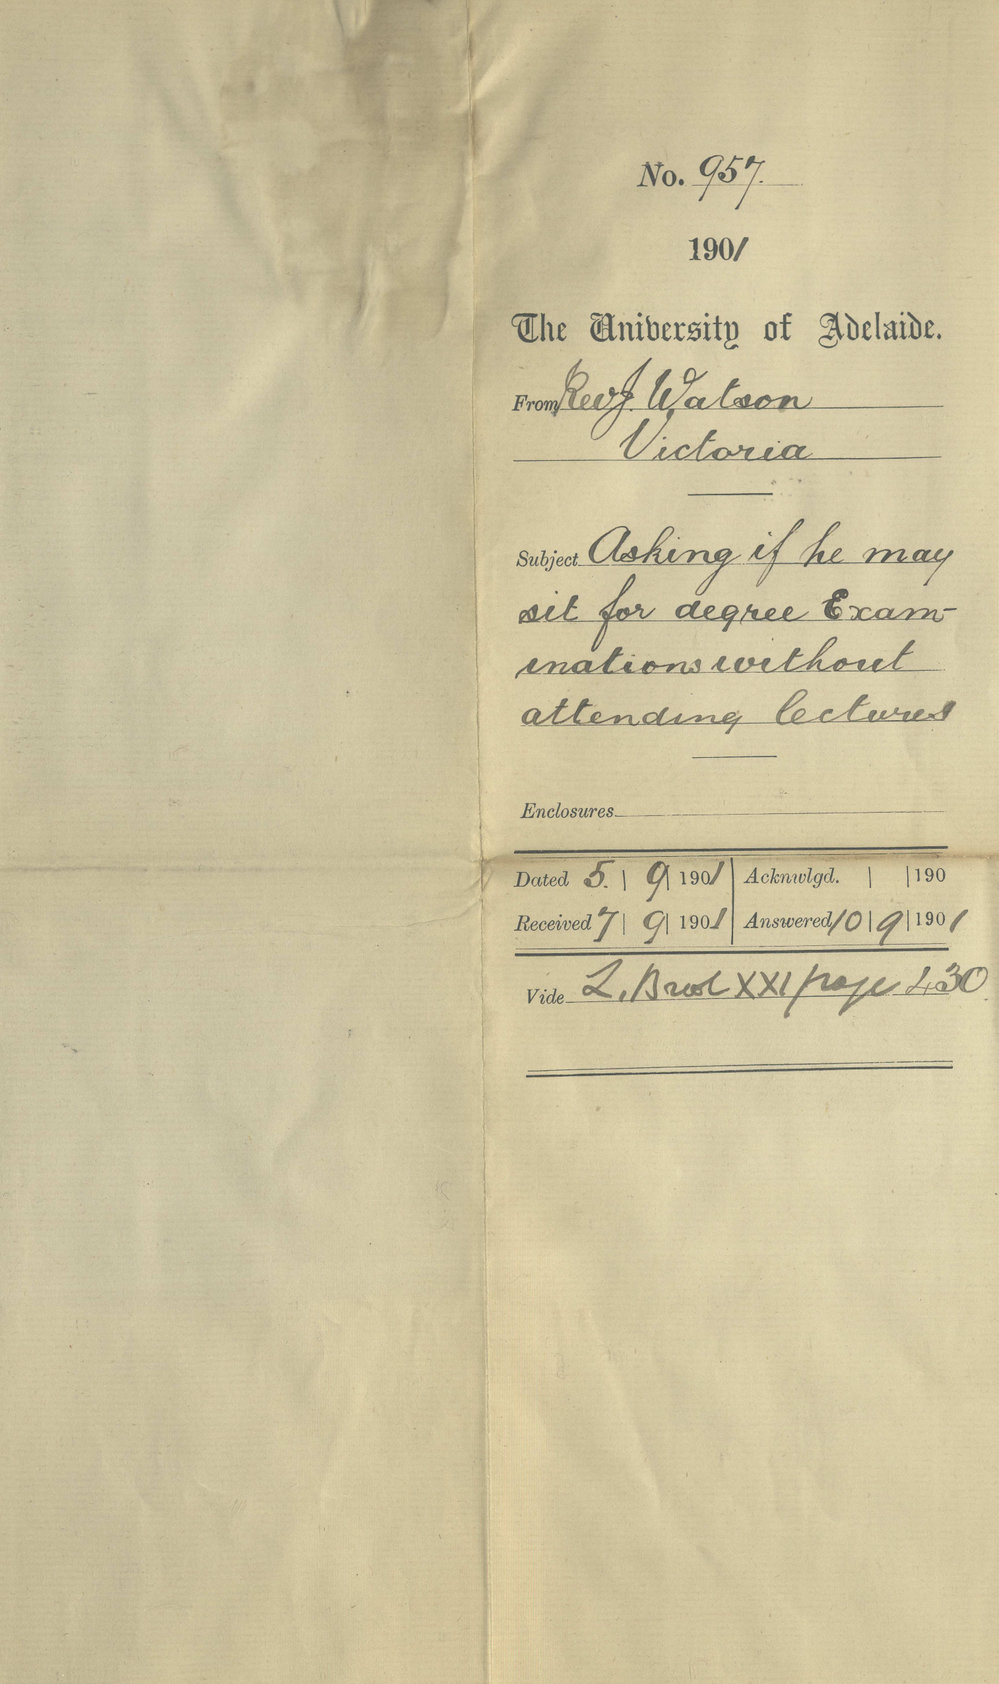 No. 957.
1901
The University of Adelaide.
From Rev J. Watson
Victoria
Subject Asking if he may
sit for degree Exam-
inations without
attending lectures
Enclosures
Dated 5. | 9 | 1901 Acknwlgd. | | 190
Received 7 | 9 | 1901 Answered 10 | 9 | 1901
Vide L. XXI page 430